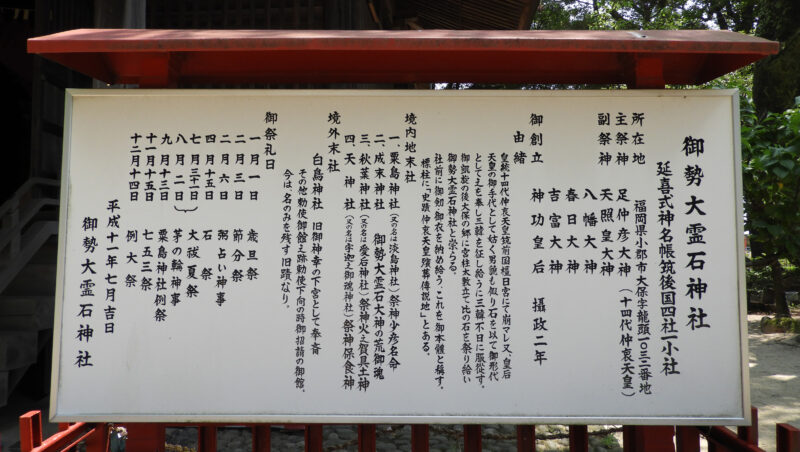 御勢大霊石神社
延喜式神名帳筑後国四社一小社
所在地　福岡県小郡市大保字龍頭一〇三二番地
主祭神　足仲彦大神（十四代仲哀天皇）
副祭神　天照皇大神
八幡大神
春日大神
吉富大神
御創立　神功皇后　摂政二年
由緒
皇統十四代仲哀天皇筑前国橿日宮にて崩マレ又、皇后
天皇の御手代として妨く男貌も似り石を以て御形代
として之を奉し三韓を征し給うに三韓不日に服従す。
御凱旋の後大保の郷に宮柱太敷立て比の石を祭り給い
御勢大霊石神社と崇らる。
社前に御剱御衣を納め給う、これを御本體と稱す。
標柱に「史蹟仲哀天皇殯葬傳説地」とある。
境内地末社
一、粟島神社（又の名は淡島神社）祭神少彦名命
二、成末神社　御勢大霊石大神の荒御魂
三、秋葉神社（又の名は愛石神社）祭神火之賀具土神
四、天神社（又の名は宇迦之御魂神社）祭神保食神
境外末社
白鳥神社　旧御神幸の下宮として奉斎
その他勅使御館之跡勅使下向の時御招請の御館。
今は、名のみを残す旧蹟なり。
御祭礼日
一月一日　歳旦祭
二月三日　節分祭
二月六日　粥占い神事
四月十五日　石祭
七月三十一日　大祓夏祭
八月二日　茅の輪神事
九月十三日　粟島神社例祭
十一月十五日　七五三祭
十二月十四日　例大祭
平成十一年七月吉日
御勢大霊石神社